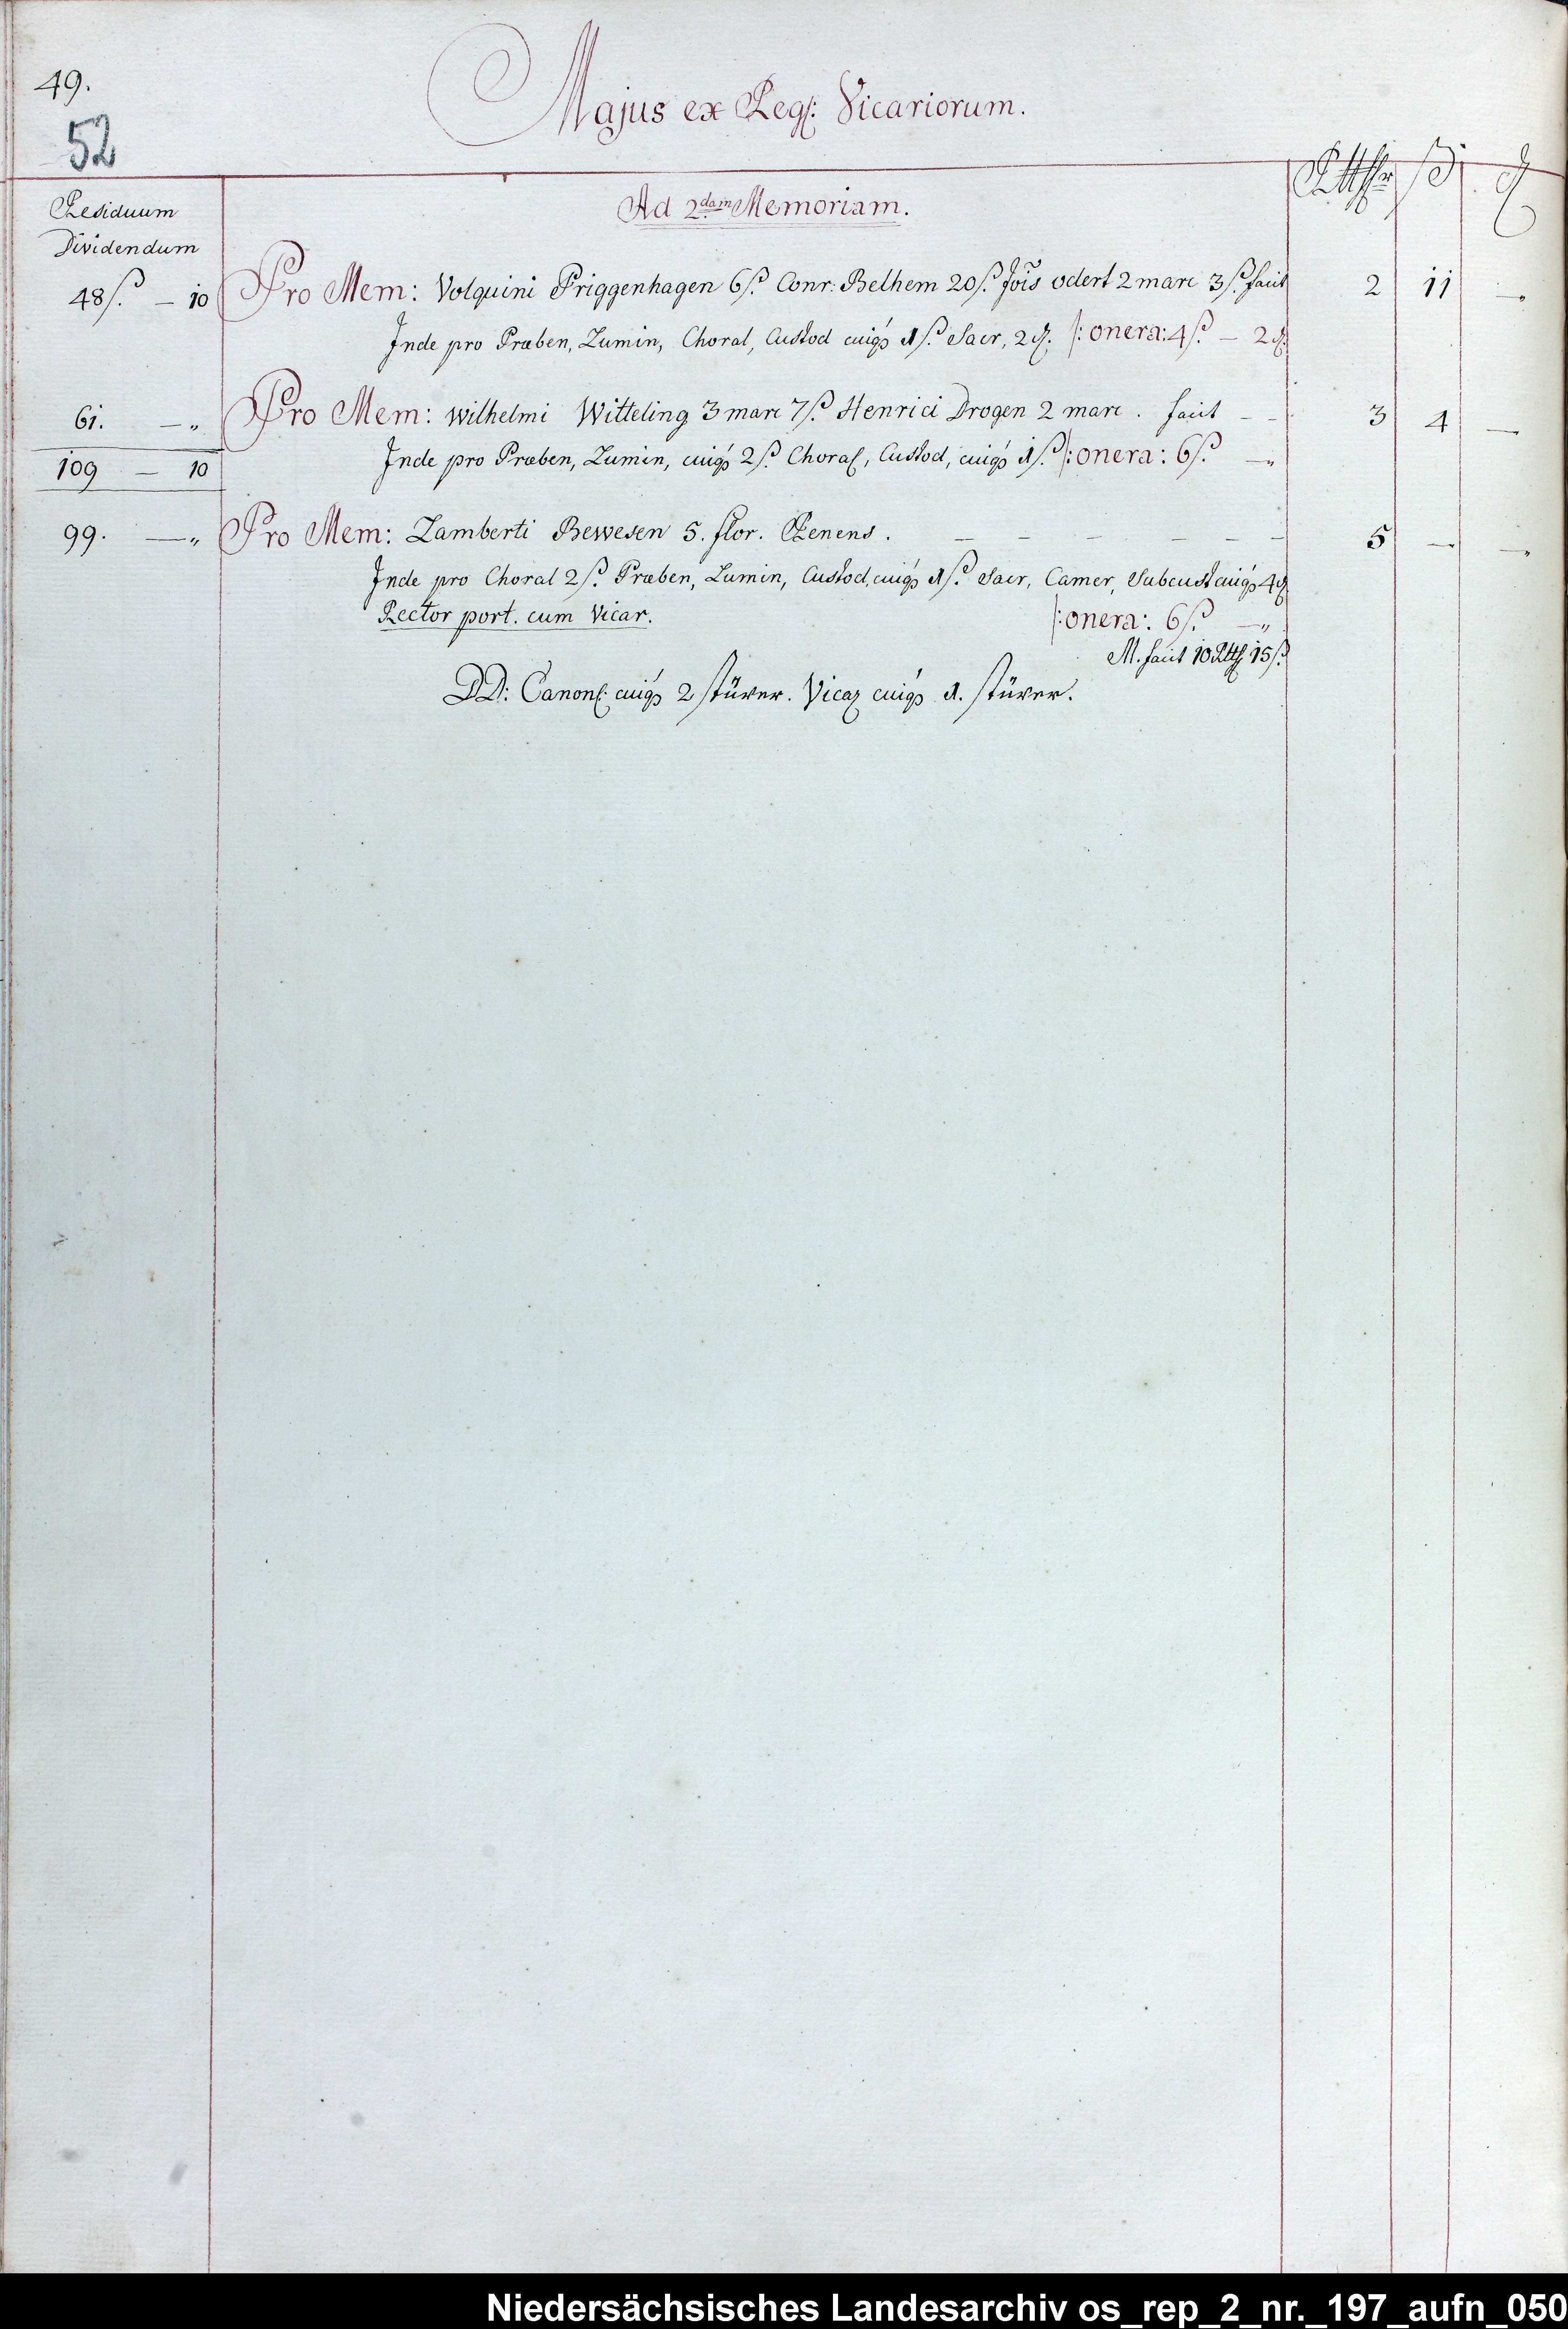 49.
52
Majus ex Reg: Vicariorum.
Rtthlr ß ₰
Residuum
Dividendum
Ad 2.dam Memoriam.
48ß. — 10 Pro Mem: Volquini Priggenhagen 6ß. Conr: Belhem 20ß. Jois odert 2 marc 3ß. facit 2 11 —
Inde pro Præben, Lumin, Choral, Custod cuiq 1ß. Sacr, 2₰. /: onera: 4ß. — 2₰.
61. — „ Pro Mem: Wilhelmi Witteling 3 marc 7ß. Henrici Drogen 2 marc. facit — — 3 4 —
109 — 10 Inde pro Præben, Lumin, cuiq 2ß. Choral, Custod, cuiq 1ß. /: onera: 6ß. — „
99. — „ Pro Mem: Lamberti Bewesen 5. flor. Renens. — — — — — — 5 — —
Inde pro Choral 2ß. Præben, Lumin, Custod, cuiq 1ß. Sacr, Camer, Subcust cuiq 4₰
Rector port. cum Vicar. /: onera: 6ß. — „
M. facit 10 Rtt 15ß.
DD: Canon: cuiq 2 stüver. Vicar cuiq 1. stüver.
Niedersächsisches Landesarchiv os_rep_2_nr._197_aufn_050